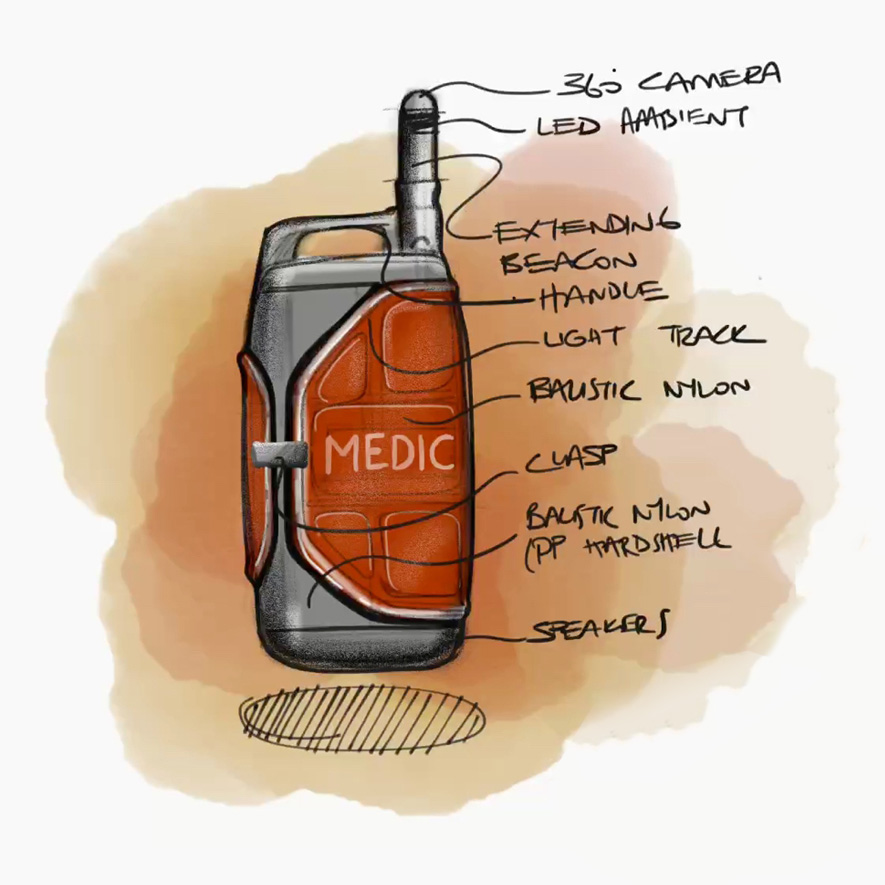 360° CAMERA
LED AMBIENT
EXTENDING
BEACON
HANDLE
LIGHT TRACK
BALISTIC NYLON
MEDIC
CLASP
BALISTIC NYLON
/PP HARDSHELL
SPEAKERS